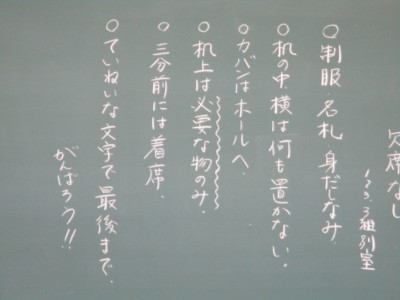 欠席なし
1年3組別室
○制服・名札・身だしなみ
○机の中、横は何も置かない。
○カバンはホールへ。
○机上は必要な物のみ。
○三分前には着席。
○ていねいな文字で最後まで。
がんばろう!!